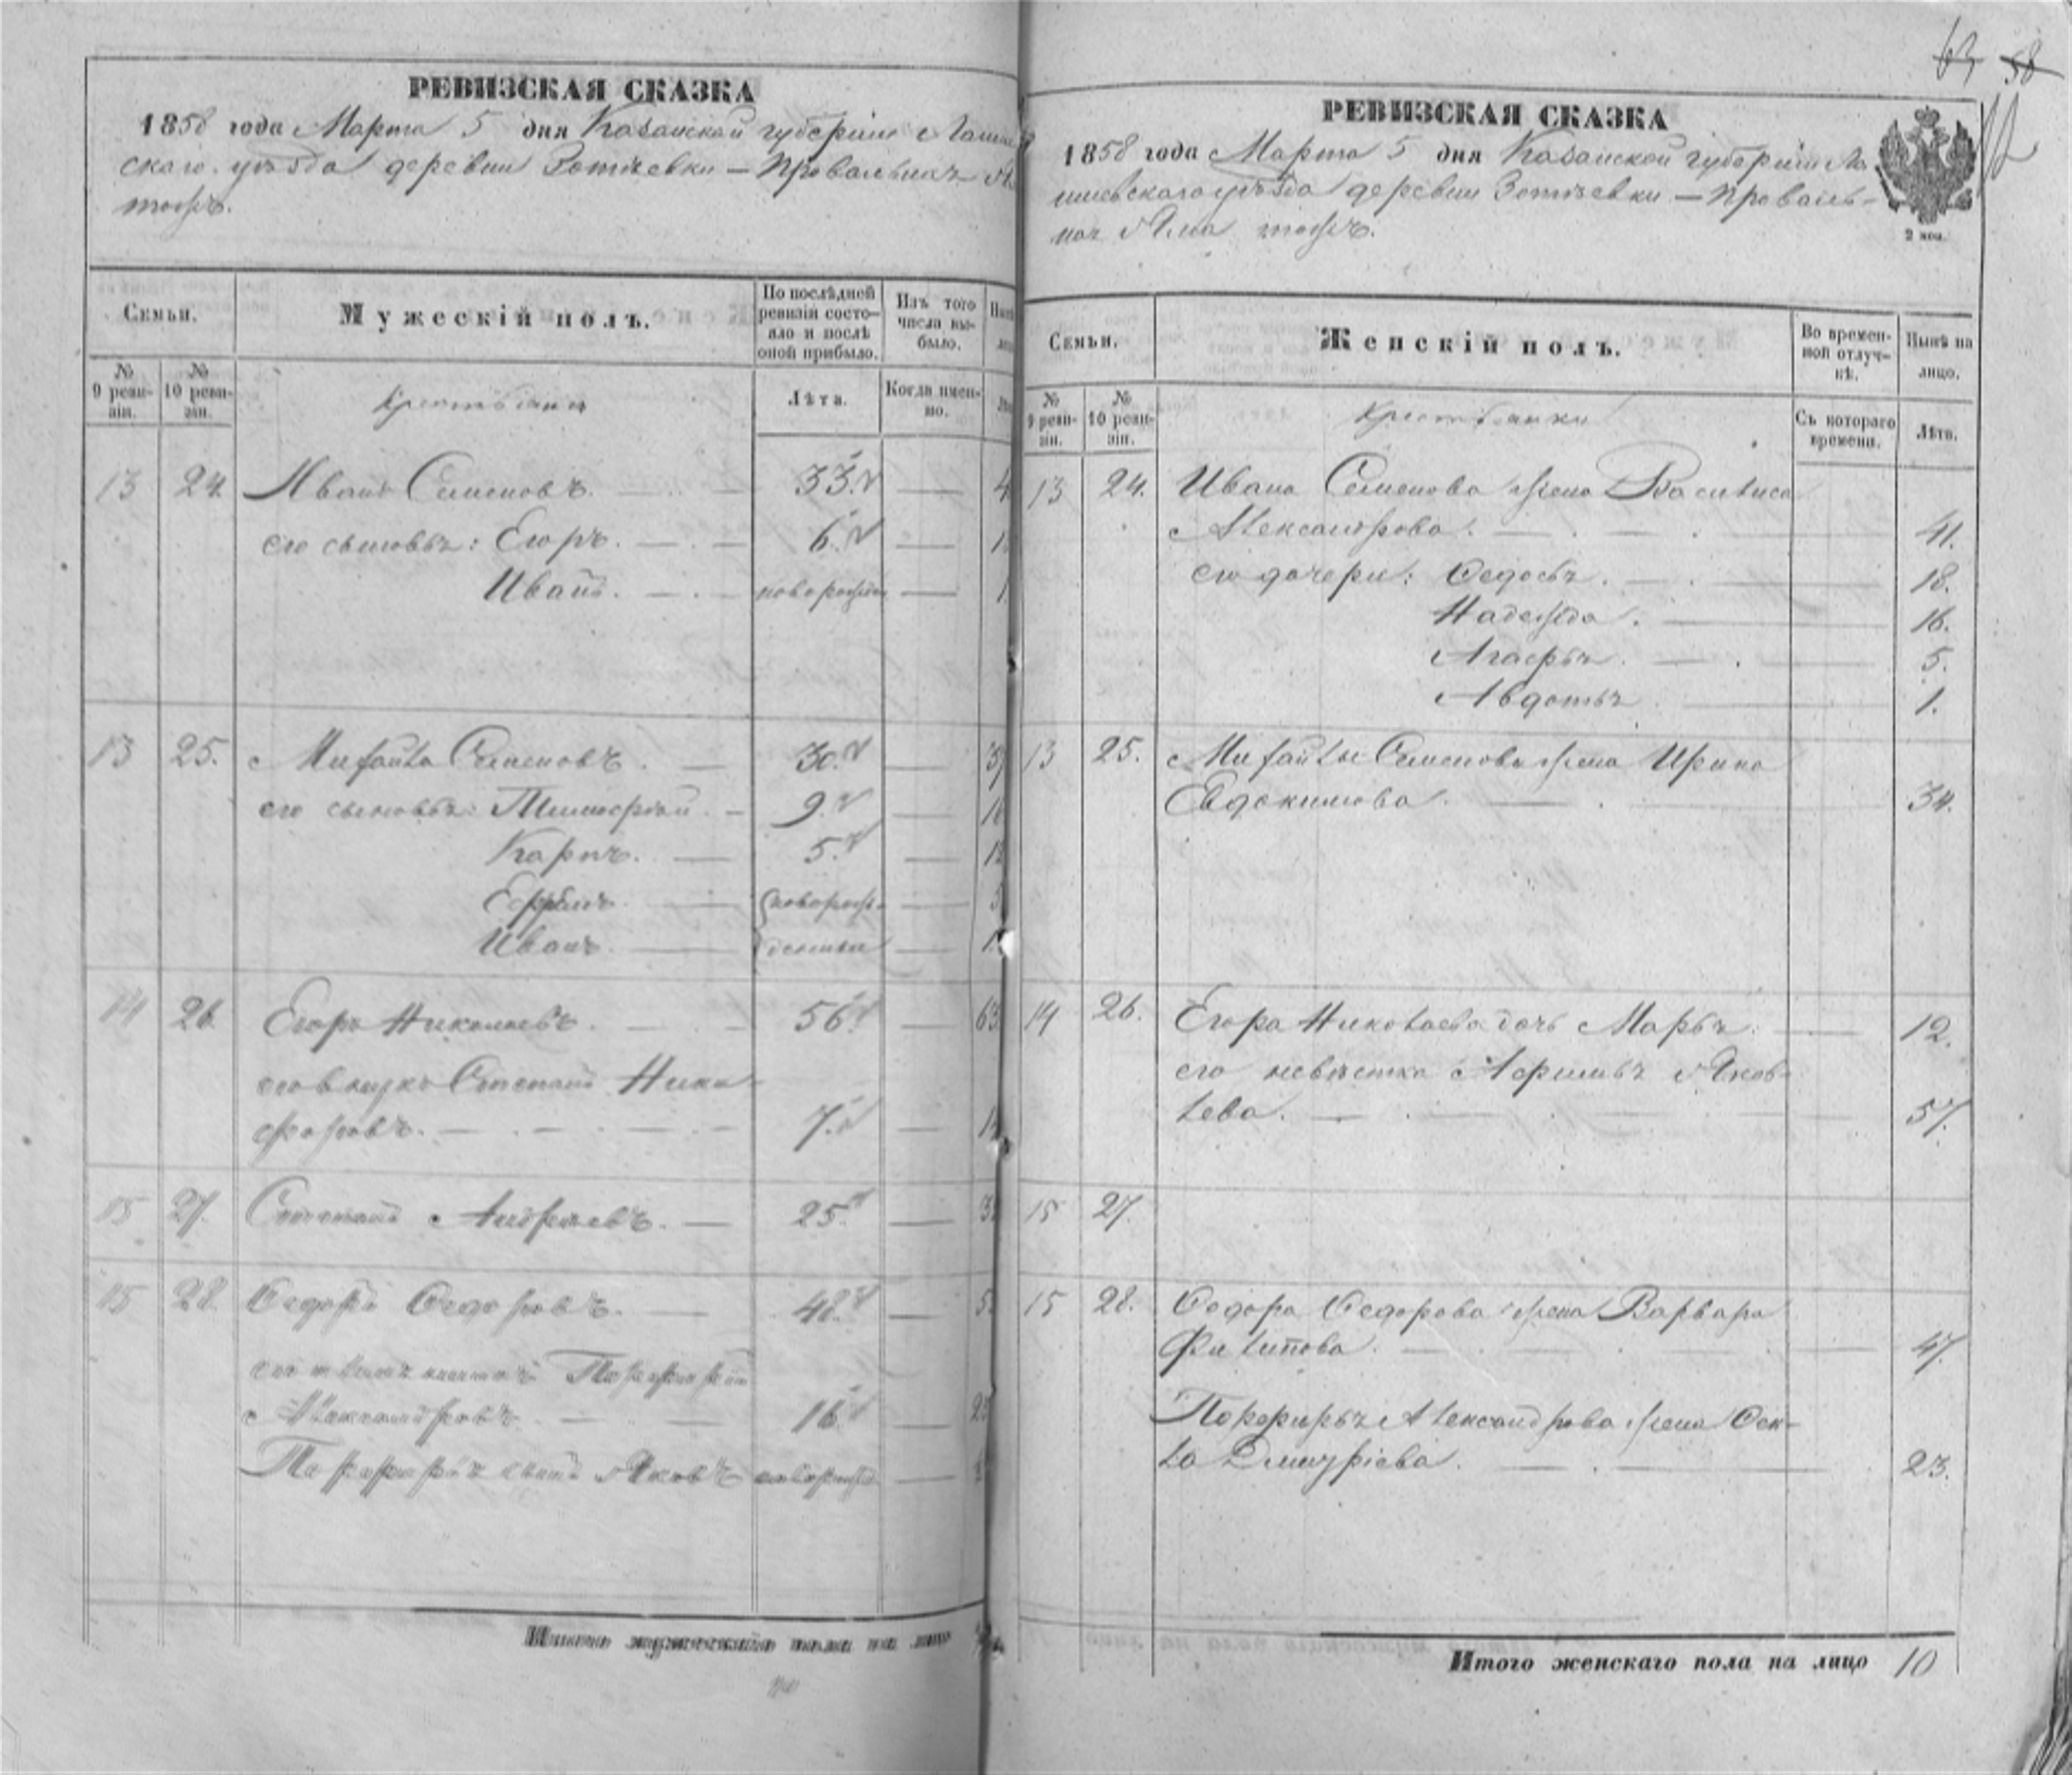 63 58
РЕВИЗСКАЯ СКАЗКА
1858 года Марта 5 дня Казанской губерніи
скаго уѣзда деревни Зотѣевки — Провальная
тожъ.
Семьи.
Мужескій полъ.
По послѣдней ревизіи состояло и послѣ оной прибыло.
Изъ того числа выбыло.
№ 9 ревизіи.
№ 10 ревизіи.
Крестьяне
Лѣта.
Когда именно.
13 24. Иванъ Семеновъ. 33.
его сыновья: Егоръ. 6.
Иванъ. новорожден
13 25. Михайла Семеновъ. 30.
его сыновья: Тимофей. 9.
Карпъ. 5.
Ефимъ новорож-
Иванъ. денные
14 26. Егоръ Николаевъ. 56. 63
его внукъ Степанъ Ники-
форовъ. 7.
15 27. Степанъ Андреевъ. 25.
15 28. Ѳедоръ Ѳедоровъ. 48.
его племянникъ Порфирій
Александровъ 16.
Порфирія сынъ Яковъ новорожд
Итого мужескаго пола на лицо
РЕВИЗСКАЯ СКАЗКА
1858 года Марта 5 дня Казанской губерніи Ла-
ишевскаго уѣзда деревни Зотѣевки — Проваль-
ная Яма тожъ.
2 коп.
Семьи.
Женскій полъ.
Во временной отлучкѣ.
Нынѣ на лицо.
№ 9 ревизіи.
№ 10 ревизіи.
Крестьянки
Съ котораго времени.
Лѣта.
13 24. Ивана Семенова жена Василиса
Александрова. 41.
его дочери: Ѳедосья. 18.
Надежда. 16.
Агафья. 5.
Авдотья 1.
13 25. Михайлы Семенова жена Ирина
Евдокимова. 34.
14 26. Егора Николаева дочь Марья. 12.
его невѣстка Афимья Яков-
лева. 57.
15 27.
15 28. Ѳедора Ѳедорова жена Варвара
Филипова. 47.
Порфирья Александрова жена Ѳек-
ла Дмитріева. 23.
Итого женскаго пола на лицо 10